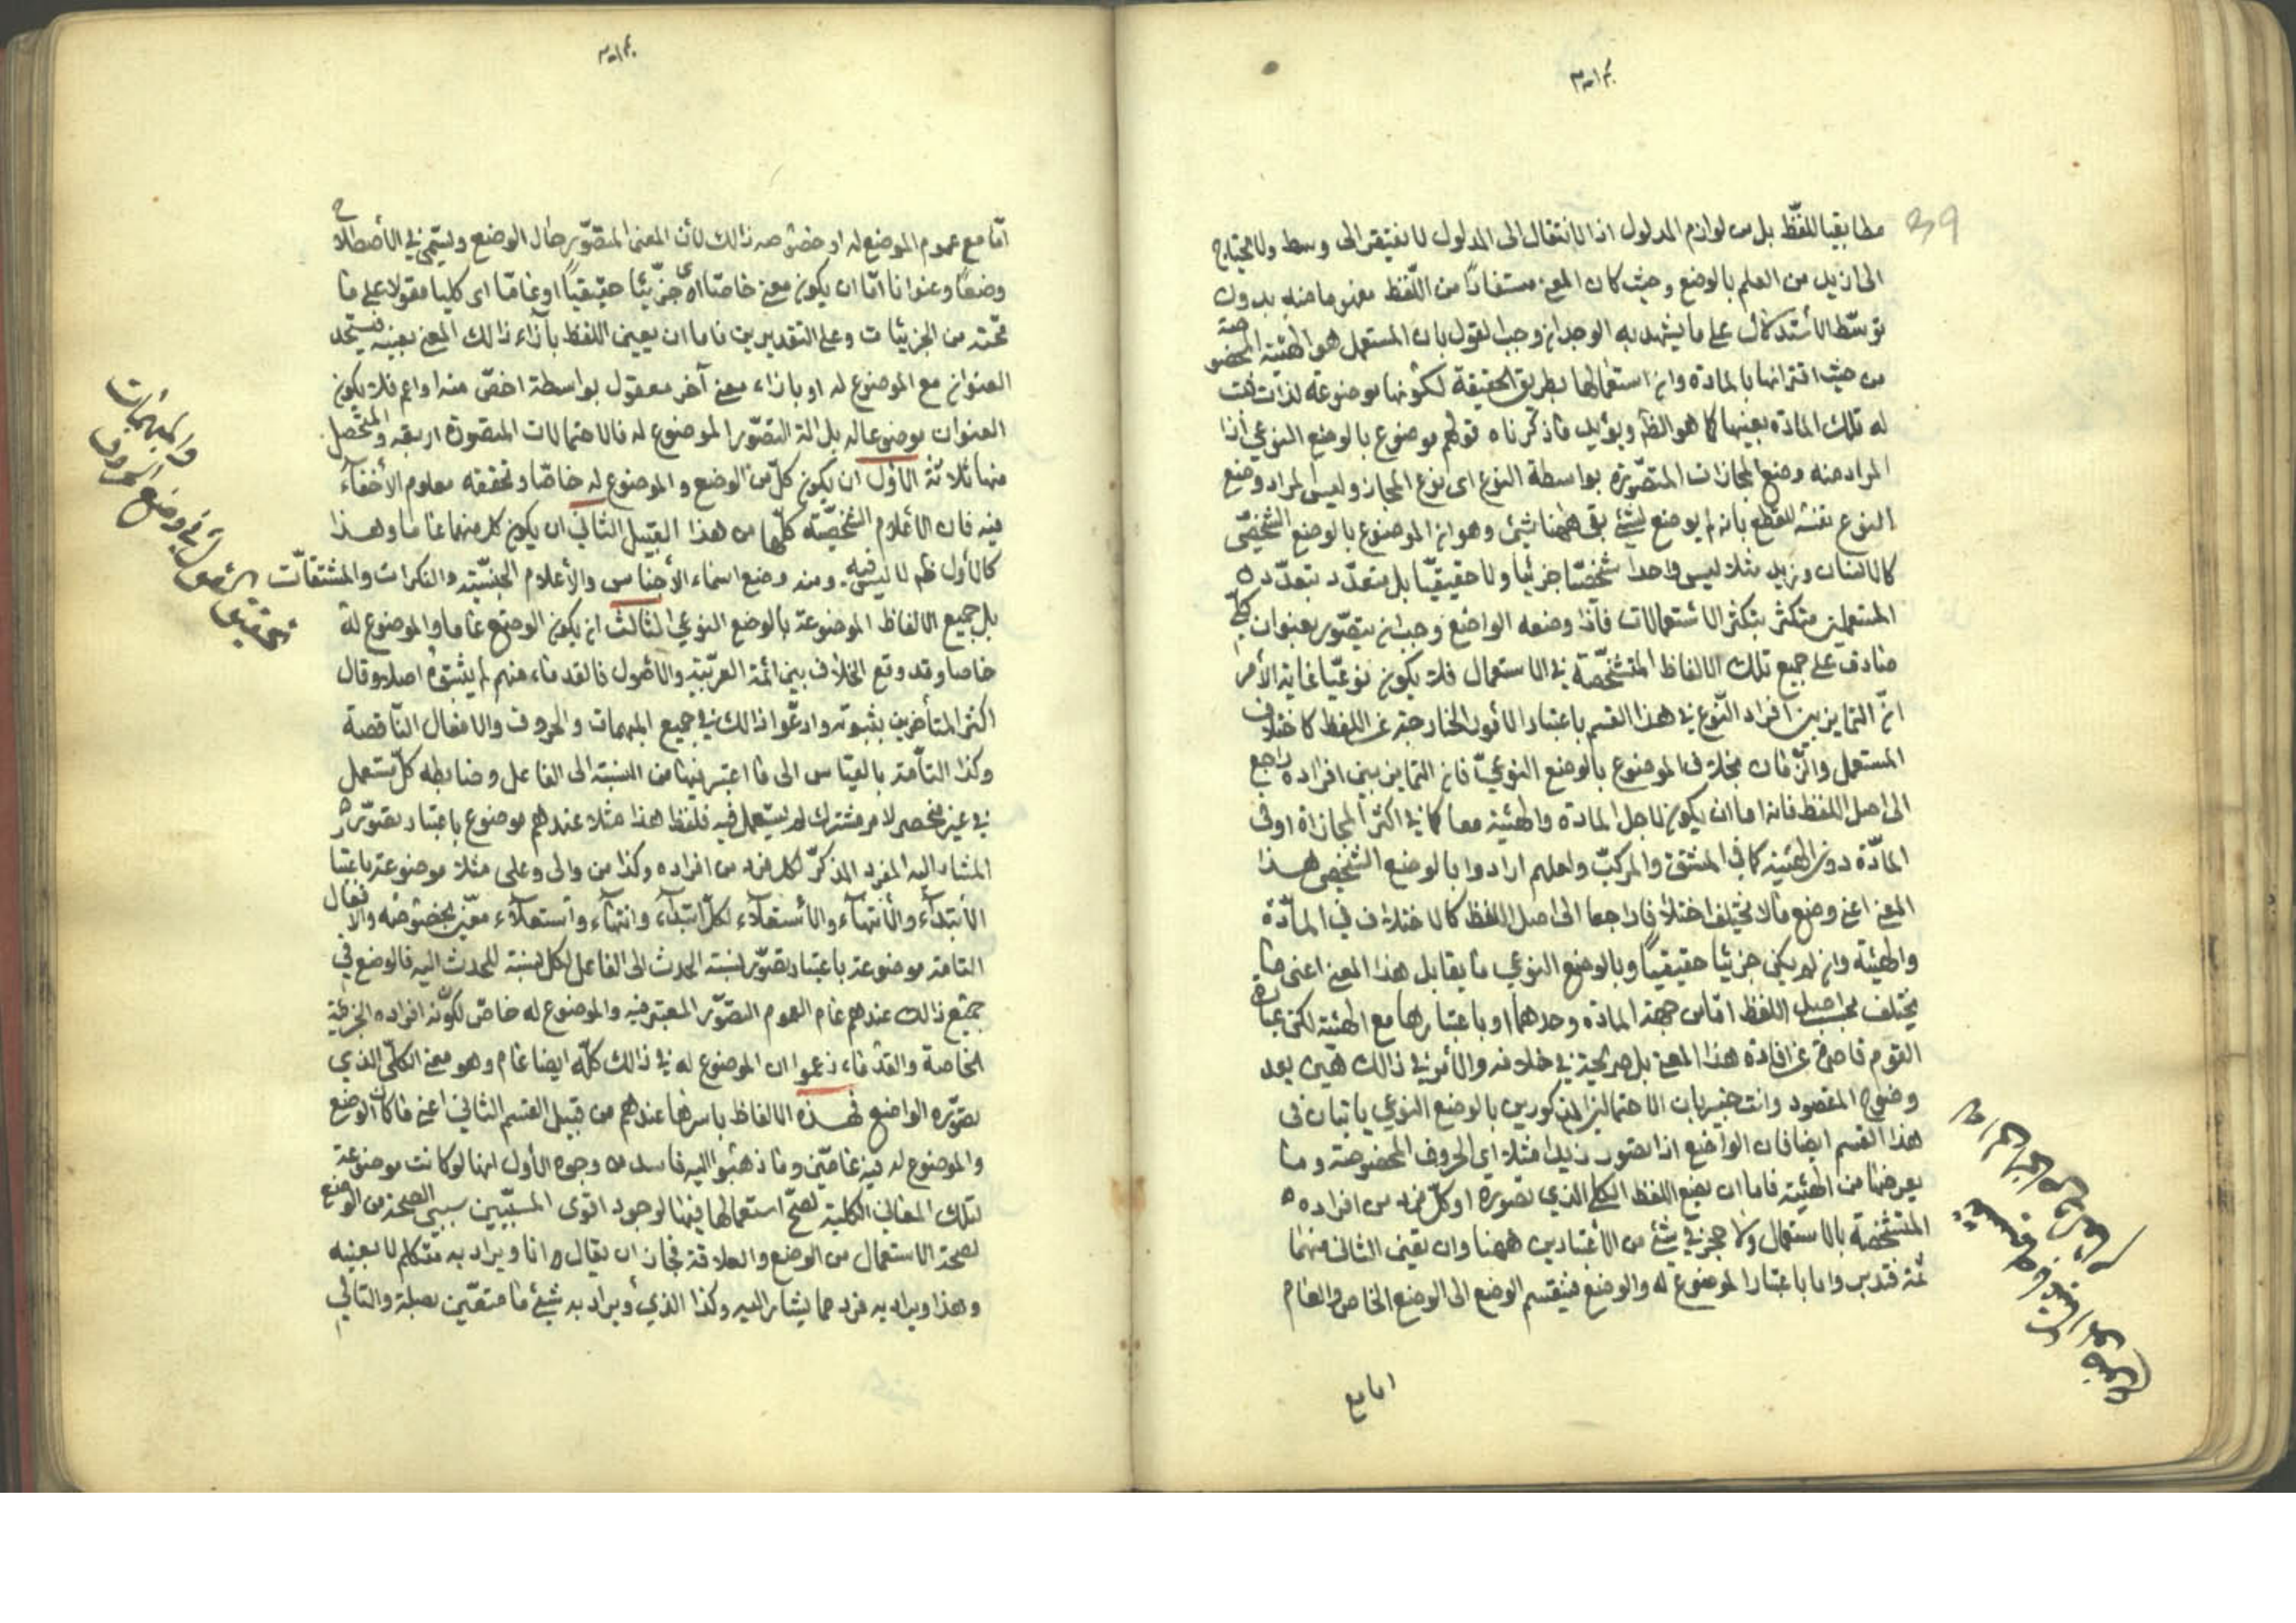 مطابقيا للفظ بل من لوازم المدلول اذ الانتقال الى المدلول لا يفتقر الى وسط ولا يحتاج
الى ازيد من العلم بالوضع وحيث كان المعنى مستفادًا من اللفظ مفهوما منه بدون
توسّط الاستدلال على ما يشهد به الوجدان وجب القول بان المستعمل هو الهيئة المخصوصة
من حيث اقترانها بالمادة وان استعمالها بطريق الحقيقة لكونها موضوعة لذات ثبت
له تلك المادة بعينها كما هو الظ ويؤيد ما ذكرناه قولهم موضوع بالوضع النوعي اذا
المراد منه وضع المجازات المتصوّرة بواسطة النوع اى نوع المجاز وليس المراد وضع
النوع نفسه للقطع بانه لم يوضع لشئ بقى ههنا شئ وهو ان الموضوع بالوضع الشخصي
كالانسان وزيد مثلا ليس واحدا شخصّا جزئيا ولا حقيقيّا بل يتعدّد بتعدّد
المستعملين متكثر بتكثر الاستعمالات فاذا وضعه الواضع وجب ان يتصوّر بعنوان كلّي
صادق على جميع تلك الالفاظ المتشخّصة في الاستعمال فلا يكون نوعيّا غاية الأمر
انّ التمايز بين افراد النّوع في هذا القسم باعتبار الأمور الخارجة عن اللفظ كاختلاف
المستعمل والزّمان بخلاف الموضوع بالوضع النوعيّ فان التمايز بين افراده راجع
الى اصل اللفظ فانه اما ان يكون لاجل المادة والهيئة معا كما في اكثر المجازات او في
المادّة دون الهيئة كما في المشتق والمركبّ ولعلهم ارادوا بالوضع الشخصي هذا
المعنى اعنى وضع ما لا يختلف اختلافا راجعا الى اصل اللفظ كالاختلاف في المادّة
والهيئة وان لم يكن جزئيا حقيقيًا وبالوضع النوعي ما يقابل هذا المعنى اعنى ما
يختلف بحسب اصل اللفظ امّا من جهة المادة وحدها او باعتبارها مع الهيئة لكن عبارة
القوم قاصرة عن افادة هذا المعنى بل صريحة في خلافه والأمر في ذالك هيّن بعد
وضوح المقصود وانت خبير بان الاحتمالين المذكورين بالوضع النوعي ياتيان في
هذا القسم ايضا فان الواضع اذا تصور زيدا مثلا اى الحروف المخصوصة وما
يعرضها من الهيئة فاما ان يضع اللفظ الكلي الذي تصوره او كلّ فرد من افراده
المتشخّصة بالاستعمال ولا حجر في شئ من الأعتبارين ههنا وان تعيّن الثانى منهما
ثمة فتدبر واما باعتبار الموضوع له والوضع فينقسم الوضع الى الوضع الخاص والعام
اما مع
امّا مع عموم الموضوع له او خصوصه ذالك لأن المعنى المتصّور حال الوضع ويسمّى في الأصطلاح
وضعًا وعنوانا امّا ان يكون معنى خاصّا اى جزئيا حقيقيًا او عامّا اى كليا مقولا على ما
تحته من الجزئيات وعلى التقديرين فاما ان يعين اللفظ بأزاء ذالك المعنى بعينه فيتّحد
العنوان مع الموضوع له او بازاء معنى آخر معقول بواسطة اخصّ منه او اعم فلا يكون
العنوان موضوعا له بل الة لتصّور الموضوع له فالاحتمالات المتصّورة اربعة والمتحصل
منها ثلاثة الأول ان يكون كلّ من الوضع والموضوع له خاصّا وتحققه معلوم لا خفاء
فيه فان الأعلام الشخصّية كلّها من هذا القبيل الثاني ان يكون كل منهما عاما وهذا
كالأول ظم لا لبس فيه ومنه وضع اسماء الأجناس والأعلام الجنسّية والنكرات والمشتقّات
بل جميع الالفاظ الموضوعة بالوضع النوعي الثالث ان يكون الوضع عاما والموضوع له
خاصا وقد وقع الخلاف بين ائمة العربّية والأصول فالقدماء منهم لم يثبتوه اصلا وقال
اكثر المتأخرين بثبوته وادعّوا ذالك في جميع المبهمات والحروف والافعال النّاقصة
وكذا التأمة بالقياس الى ما اعتبر فيها من النسبة الى الفاعل وضابطه كلّ مستعمل
في غير منحصر لامر مشترك لم يستعمل فيه فلفظ هذا مثلا عندهم موضوع باعتبار تصوّره
المشار اليه المفرد المذكّر لكل فرد من افراده وكذا من والى وعلى مثلا موضوعة باعتبار
الأبتداء والأنتهاء والأستعلاء لكلّ ابتداء وانتهاء واستعلاء معيّن بخصوصه والافعال
التامة موضوعة باعتبار تصوّر نسبة الحدث الى الفاعل لكل نسبة للحدث اليه فالوضع في
جميع ذالك عندهم عام لعموم التصوّر المعتبر فيه والموضوع له خاصّ لكونه افراده الجزئية
الخاصة والقدماء زعموا ان الموضوع له في ذالك كلّه ايضا عام وهو معنى الكلّي الذي
تصوّره الواضع فهذه الالفاظ باسرها عندهم من قبيل القسم الثاني اعنى ما كان الوضع
والموضوع له فيه عامّين وما ذهبوا اليه فاسد من وجوه الأول انها لو كانت موضوعة
لتلك المعاني الكلية لصّح استعمالها فيها لوجود اقوى المسبّبين سببى الصحة من الوضع
لصحة الاستعمال من الوضع والعلاقة فجاز ان يقال انا ويراد به متكلم لا بعينه
وهذا ويراد به فرد مما يشار اليه وكذا الذي ويراد به شئ ما متعّين بصلة والتالي
والمبهمات
وضع الحروف
تحقيق